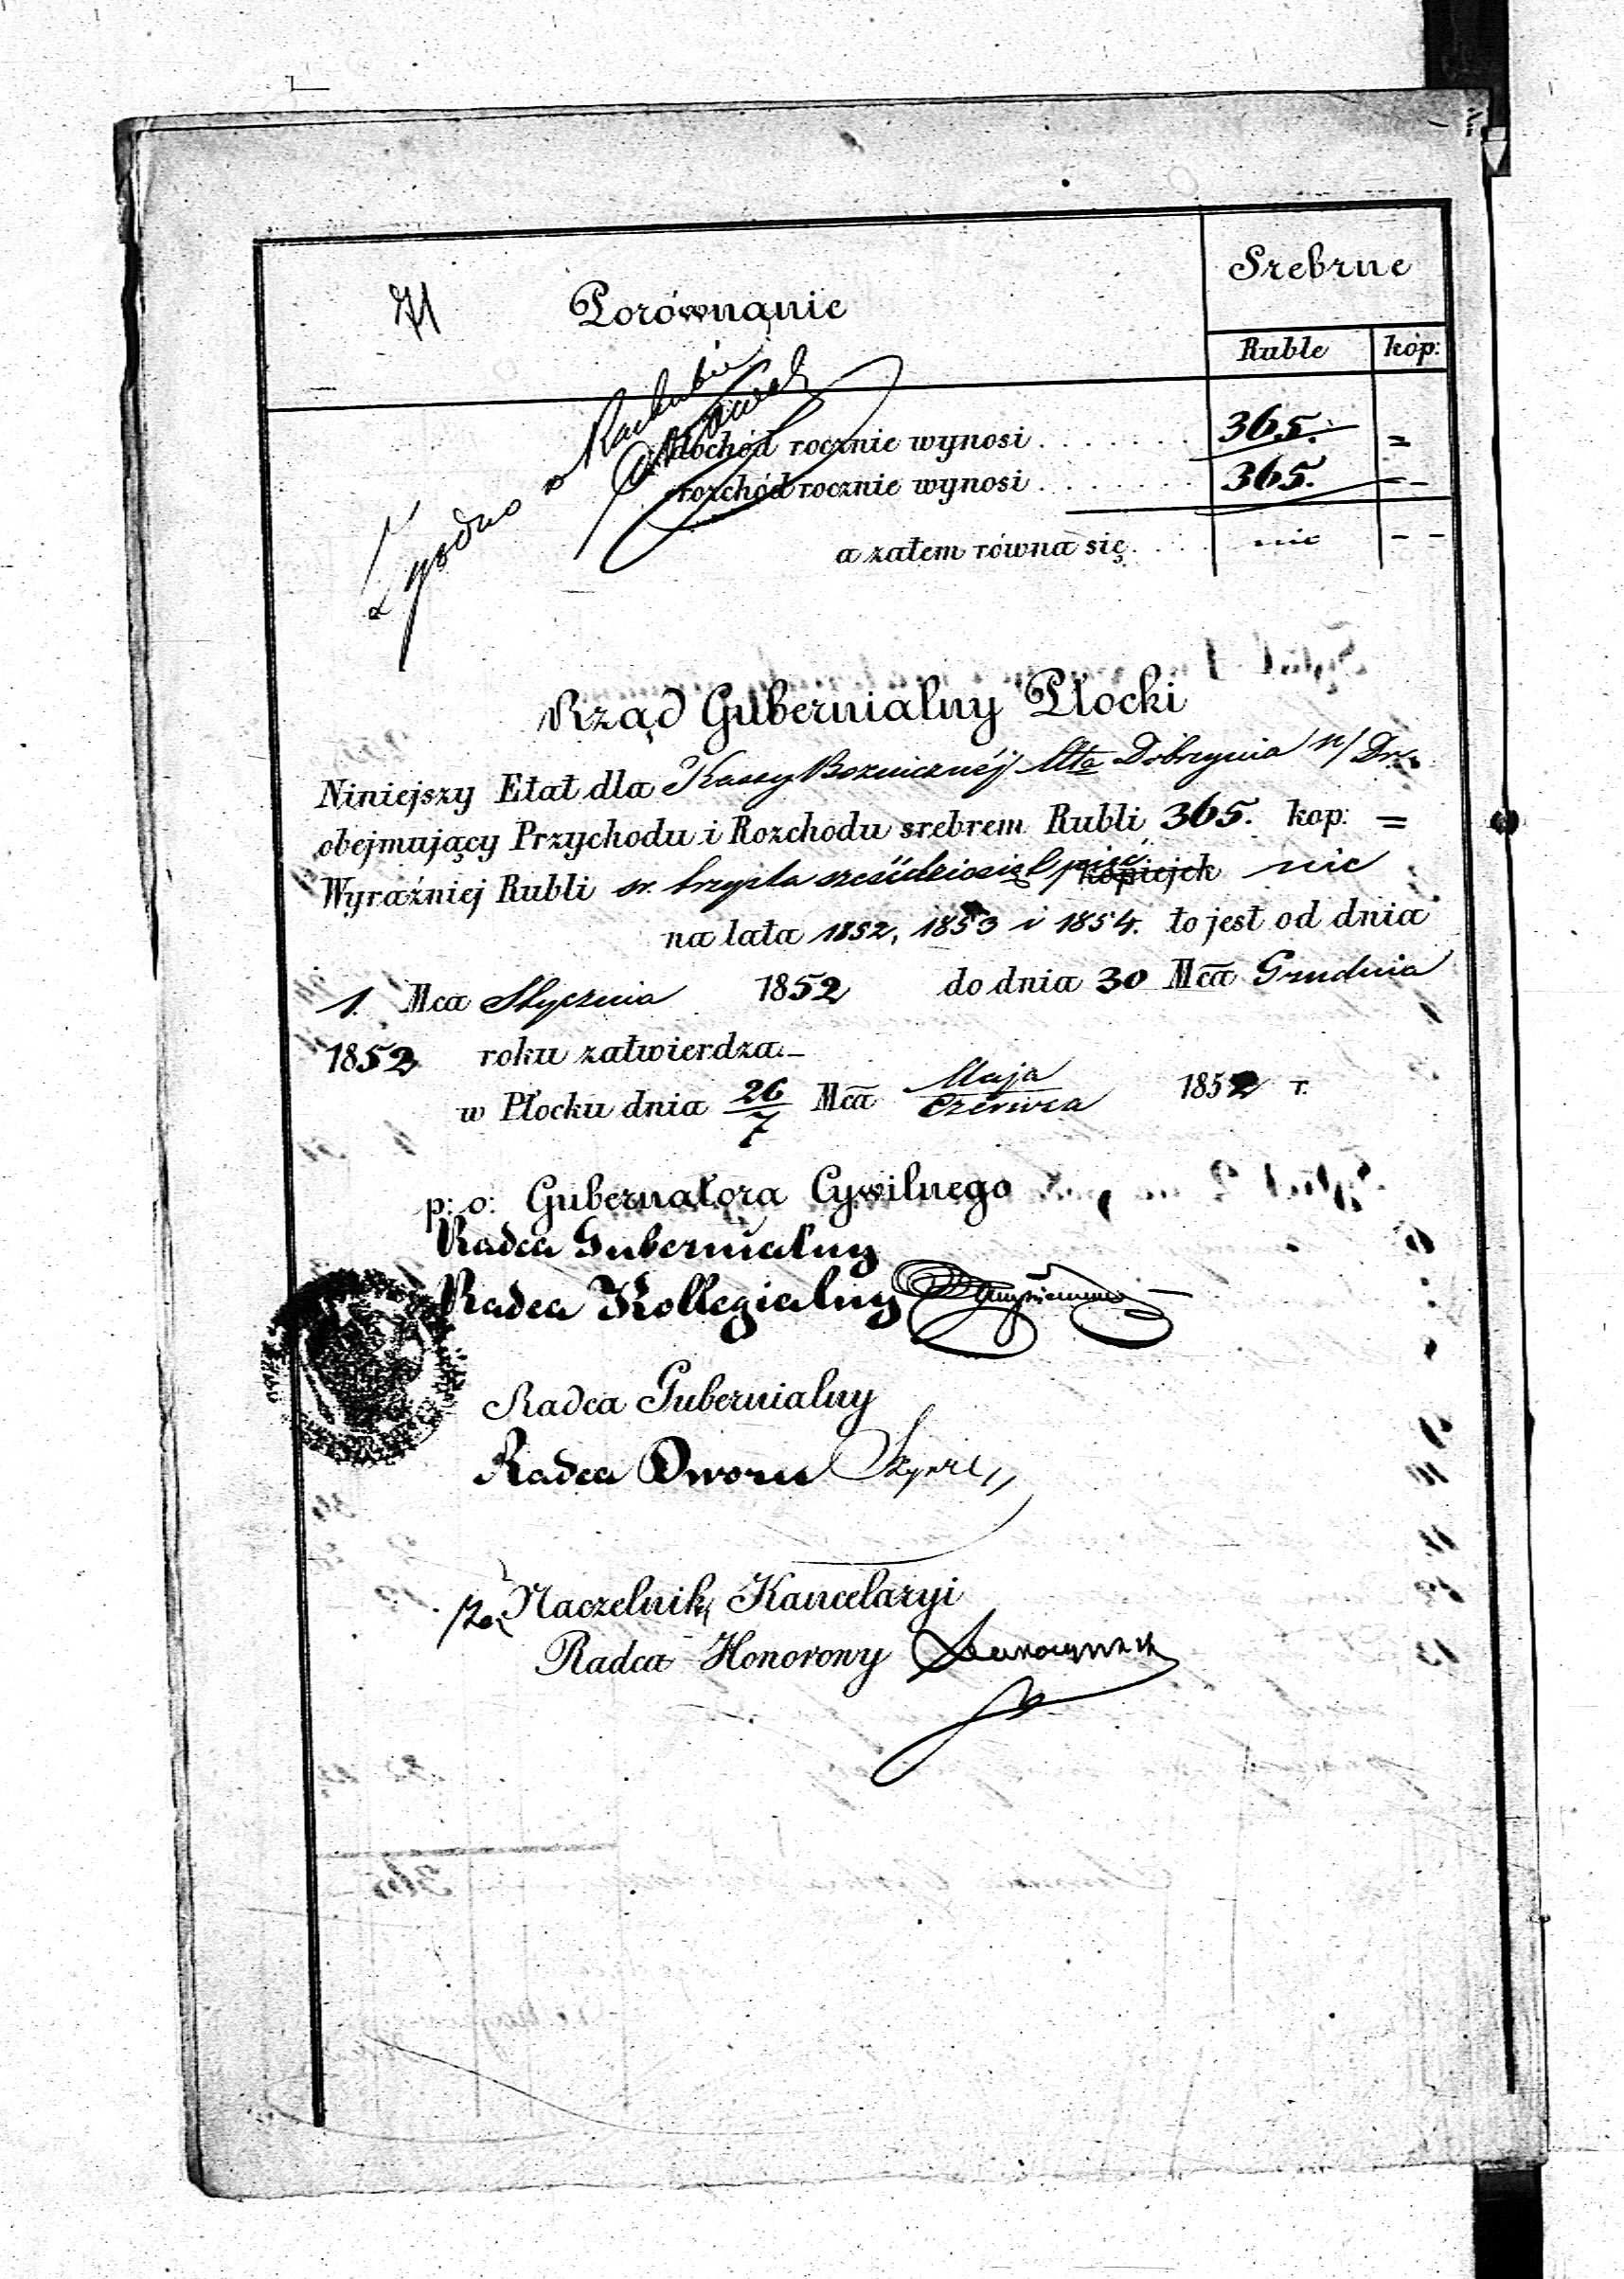 Srebrne
71 Porównanie
Ruble kop:
Zgodno w Rachubie
dochód rocznie wynosi . . . . . . . 365. =
rozchód rocznie wynosi . . . . . . . 365. - -
a zatem równa się . . . . nic - -
Rząd Gubernialny Płocki
Niniejszy Etat dla Kassy Bożnicznéj Mta Dobrzynia n/ Dr.
obejmujący Przychodu i Rozchodu srebrem Rubli 365. kop: =
Wyraźniej Rubli sr. trzysta sześćdziesiąt pięć. kopiejek nic
na lata 1852, 1853 i 1854. to jest od dnia
1. Mca Stycznia 1852 do dnia 30 Mca Grudnia
1852 roku zatwierdza.—
w Płocku dnia 26/7 Mca Maja/Czerwca 1852 r.
p: o: Gubernatora Cywilnego
Radca Gubernialny
Radca Kollegialny
Radca Gubernialny
Radca Dworu
za Naczelnika Kancelaryi
Radca Honorowy